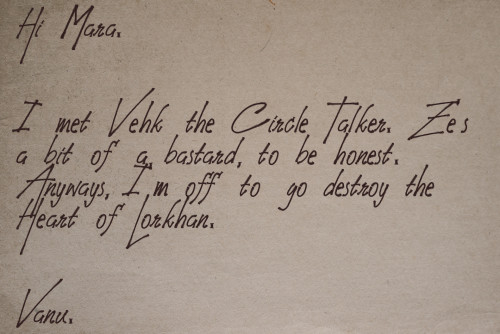 Hi Mara.
I met Vehk the Circle Talker. Ze's
a bit of a bastard, to be honest.
Anyways, I'm off to go destroy the
Heart of Lorkhan.
Vanu.